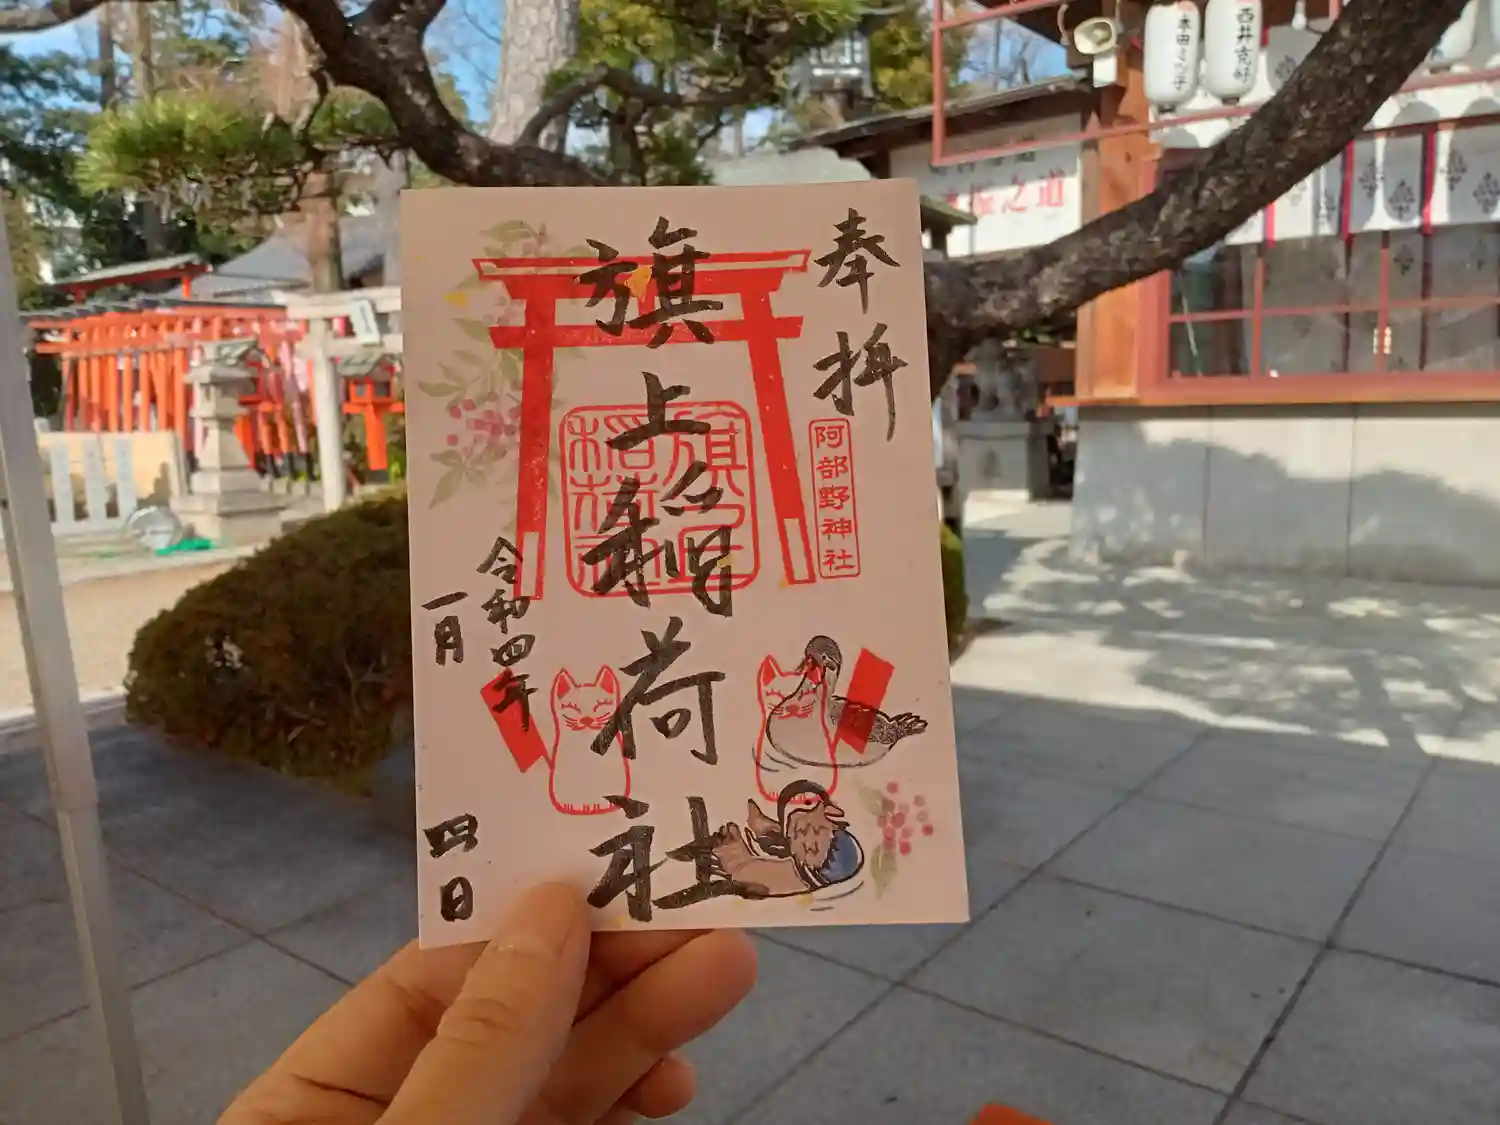 奉拝
阿部野神社
旗上稲荷社
旗上
稲荷
令和四年
一月
四日
西井克好
之道